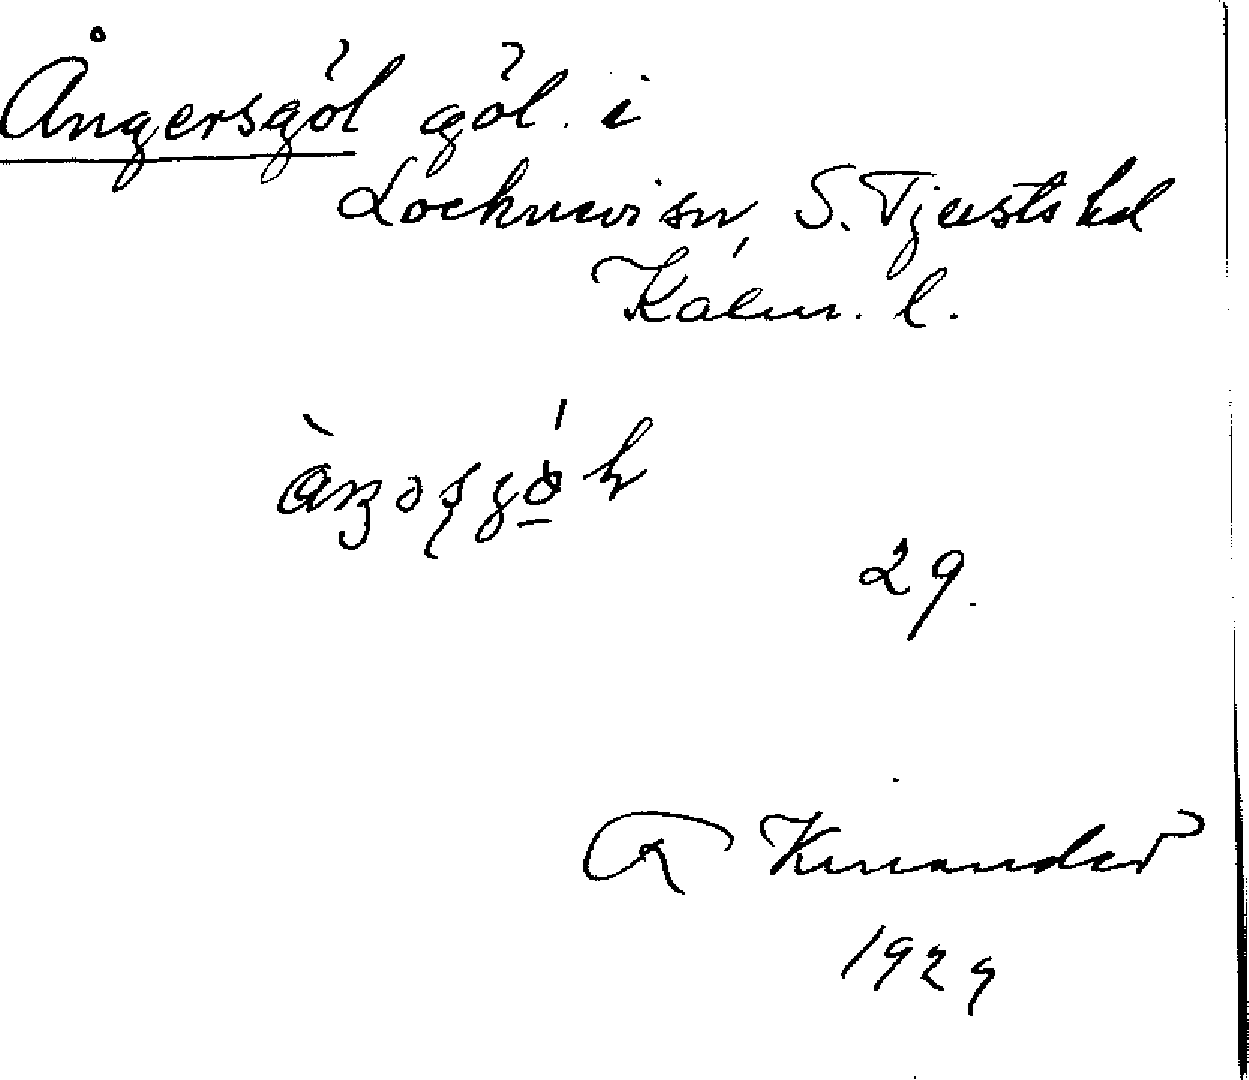 Ångersgöl göl i
Locknevi sn, S. Tjusts hd
Kalm. l.
29.
R Kinander
1929